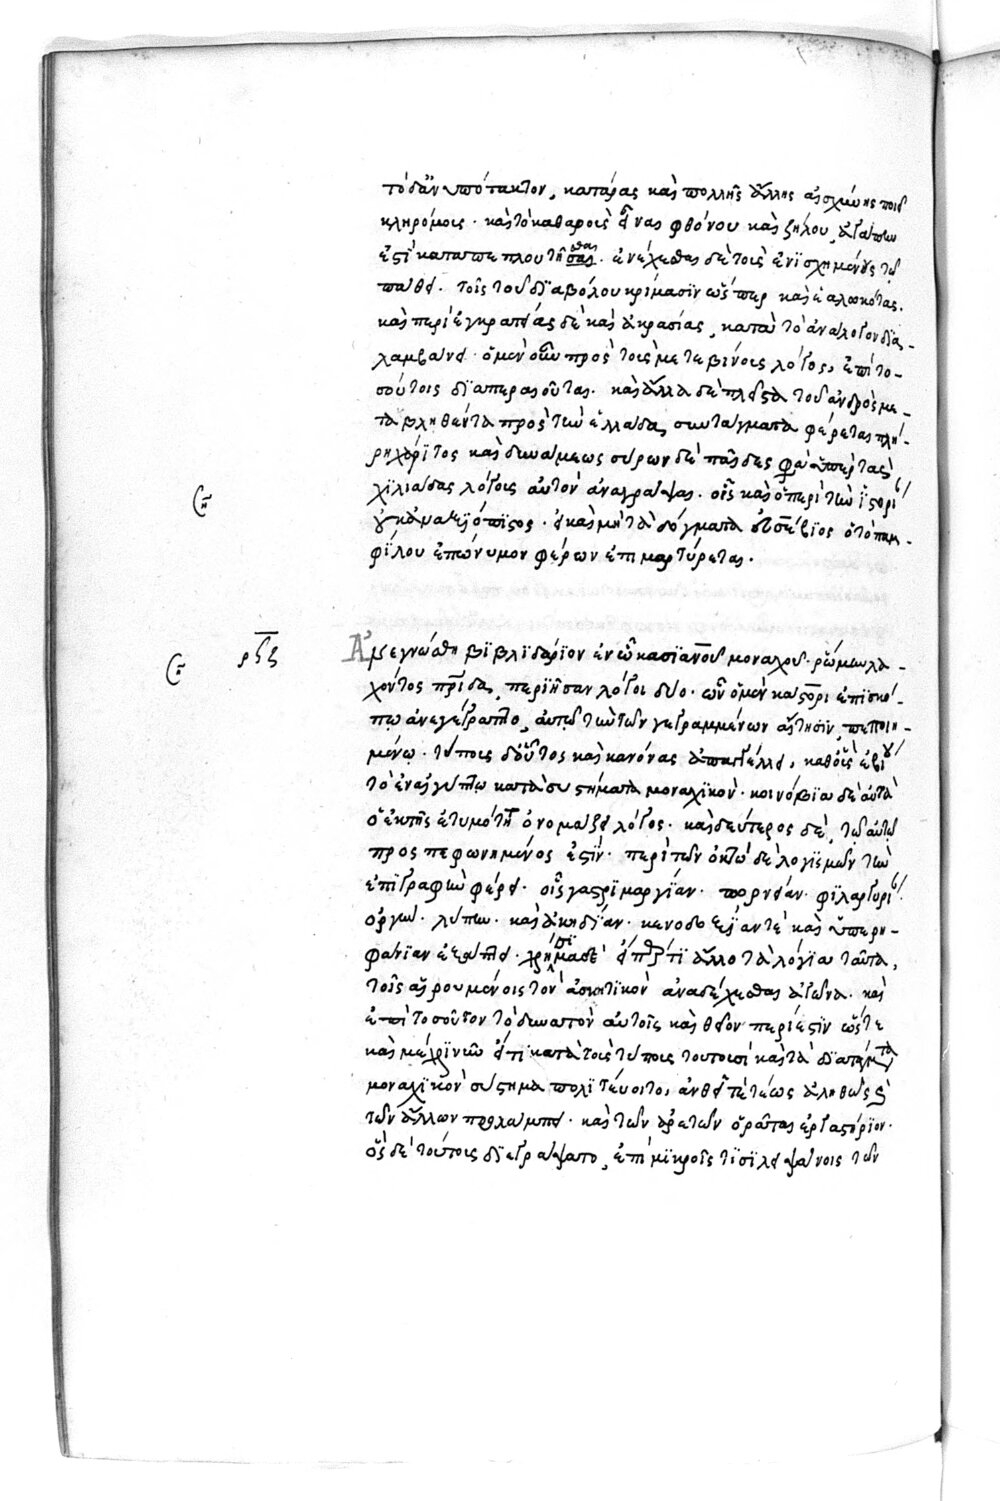 τὸ δ' ἀνυπότακτον, κατάρας καὶ πολλῆς ἄλλης αἰσχύνης ποιεῖ
κληρόμοις· καὶ τὸ καθαροὺς εἶναι φθόνου καὶ ζήλου, ἀγάπην
ἐστὶ καταπεπλουτηκέναι· ἀνέχεσθαι δὲ τοὺς ἐνισχημένους τῷ
πάθει· τοῖς τοῦ διαβόλου κρίμασιν ὥσπερ καὶ ἑαλωκότας.
καὶ περὶ ἐγκρατείας δὲ καὶ ἀκρασίας, κατὰ τὸ ἀνάλογον δια-
λαμβάνει· ὁ μὲν οὖν πρὸς τοὺς λόγος, ἐπὶ το-
σούτοις διαπερασθῦτας· καὶ ἄλλα δὲ πλεῖστα τοῦ ἀνδρὸς με-
ταβληθέντα πρὸς τὴν ἑλλάδα, συντάγματα φέρεται πλή-
ρη χάριτος καὶ δυνάμεως· σύρων δὲ παῖδες φασὶν ὑπὲρ τὰς
χιλιάδας λόγους αὐτὸν ἀναγράψαι. οἷς καὶ ὁ περὶ τὴν ἱστορί
οὐκ ἄπιστος· εἰ καὶ μὴ τὰ δόγματα εὐσέβιος ὁ τὸ παμ-
φίλου ἐπώνυμον φέρων ἐπιμαρτύρεται.
ρϟζ
Ἀνεγνώσθη βιβλιδάριον ἐν ᾧ κασιανοῦ μοναχοῦ· ῥώμην λα-
χόντος πρίδα, περιῆσαν λόγοι δύο· ὧν ὁ μὲν κάστορι ἐπισκό-
πῳ ἀνεγέγραπτο, αὐτῷ τούτων γεγραμμένων αἴτησιν πεποιη-
μένῳ· τύπους δ' οὗτος καὶ κανόνας ἀπαγγέλλει, καθ' οὓς ἐβίου
τὸ ἐν αἰγύπτῳ κατὰ συστήματα μοναχικόν· κοινόβια δὲ αὐτὰ
ὁ ἐκ τῆς ἐτυμότητος ὀνομάζει λόγος· καὶ δεύτερος δέ, τῷ αὐτῷ
προσπεφωνημένος ἐστίν· περὶ τῶν ὀκτὼ δὲ λογισμῶν τὴν
ἐπιγραφὴν φέρει· οἷς γαστριμαργίαν· πορνείαν· φιλαργυρί·
ὀργὴν· λύπην· καὶ ἀκηδίαν· κενοδοξίαν τὲ καὶ ὑπερη-
φανίαν ἐξαιτεῖ· χρήσιμα δέ εἴπερ τι ἄλλο τὰ λόγια ταῦτα,
τοῖς αἱρουμένοις τὸν ἀσκητικὸν ἀναδέχεσθαι ἀγῶνα· καὶ
ἐπὶ τοσοῦτον τὸ δυνατὸν αὐτοῖς καὶ θεῖον περίεστιν ὥστε
καὶ μέχρι νῦν εἴ τι κατὰ τοὺς τύπους τουτοισὶ καὶ τὰ διατάγματα
μοναχικὸν σύστημα πολιτεύοιτο, ἀνθεῖ τὲ τέως ἀληθῶς καὶ
τῶν ἄλλων περιλάμπει· καὶ τῶν ἀρετῶν ὁρᾶται ἐργαστήριον·
ὃς δὲ τούτοις διεγράψατο, ἐπὶ μικροῖς τισι λειψάνοις τῶν